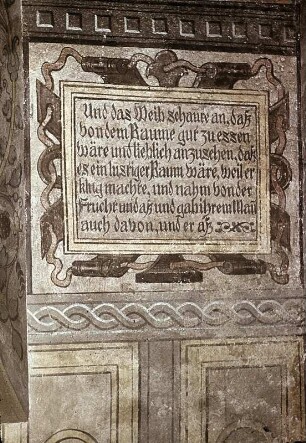 Und das Weib schaute an, daß
von dem Baume gut zu essen
wäre und lieblich anzusehen, daß
es ein lustiger Baum wäre, weil er
klug machte, und nahm von der
Frucht und aß und gab ihrem Mañ
auch davon, und er aß.